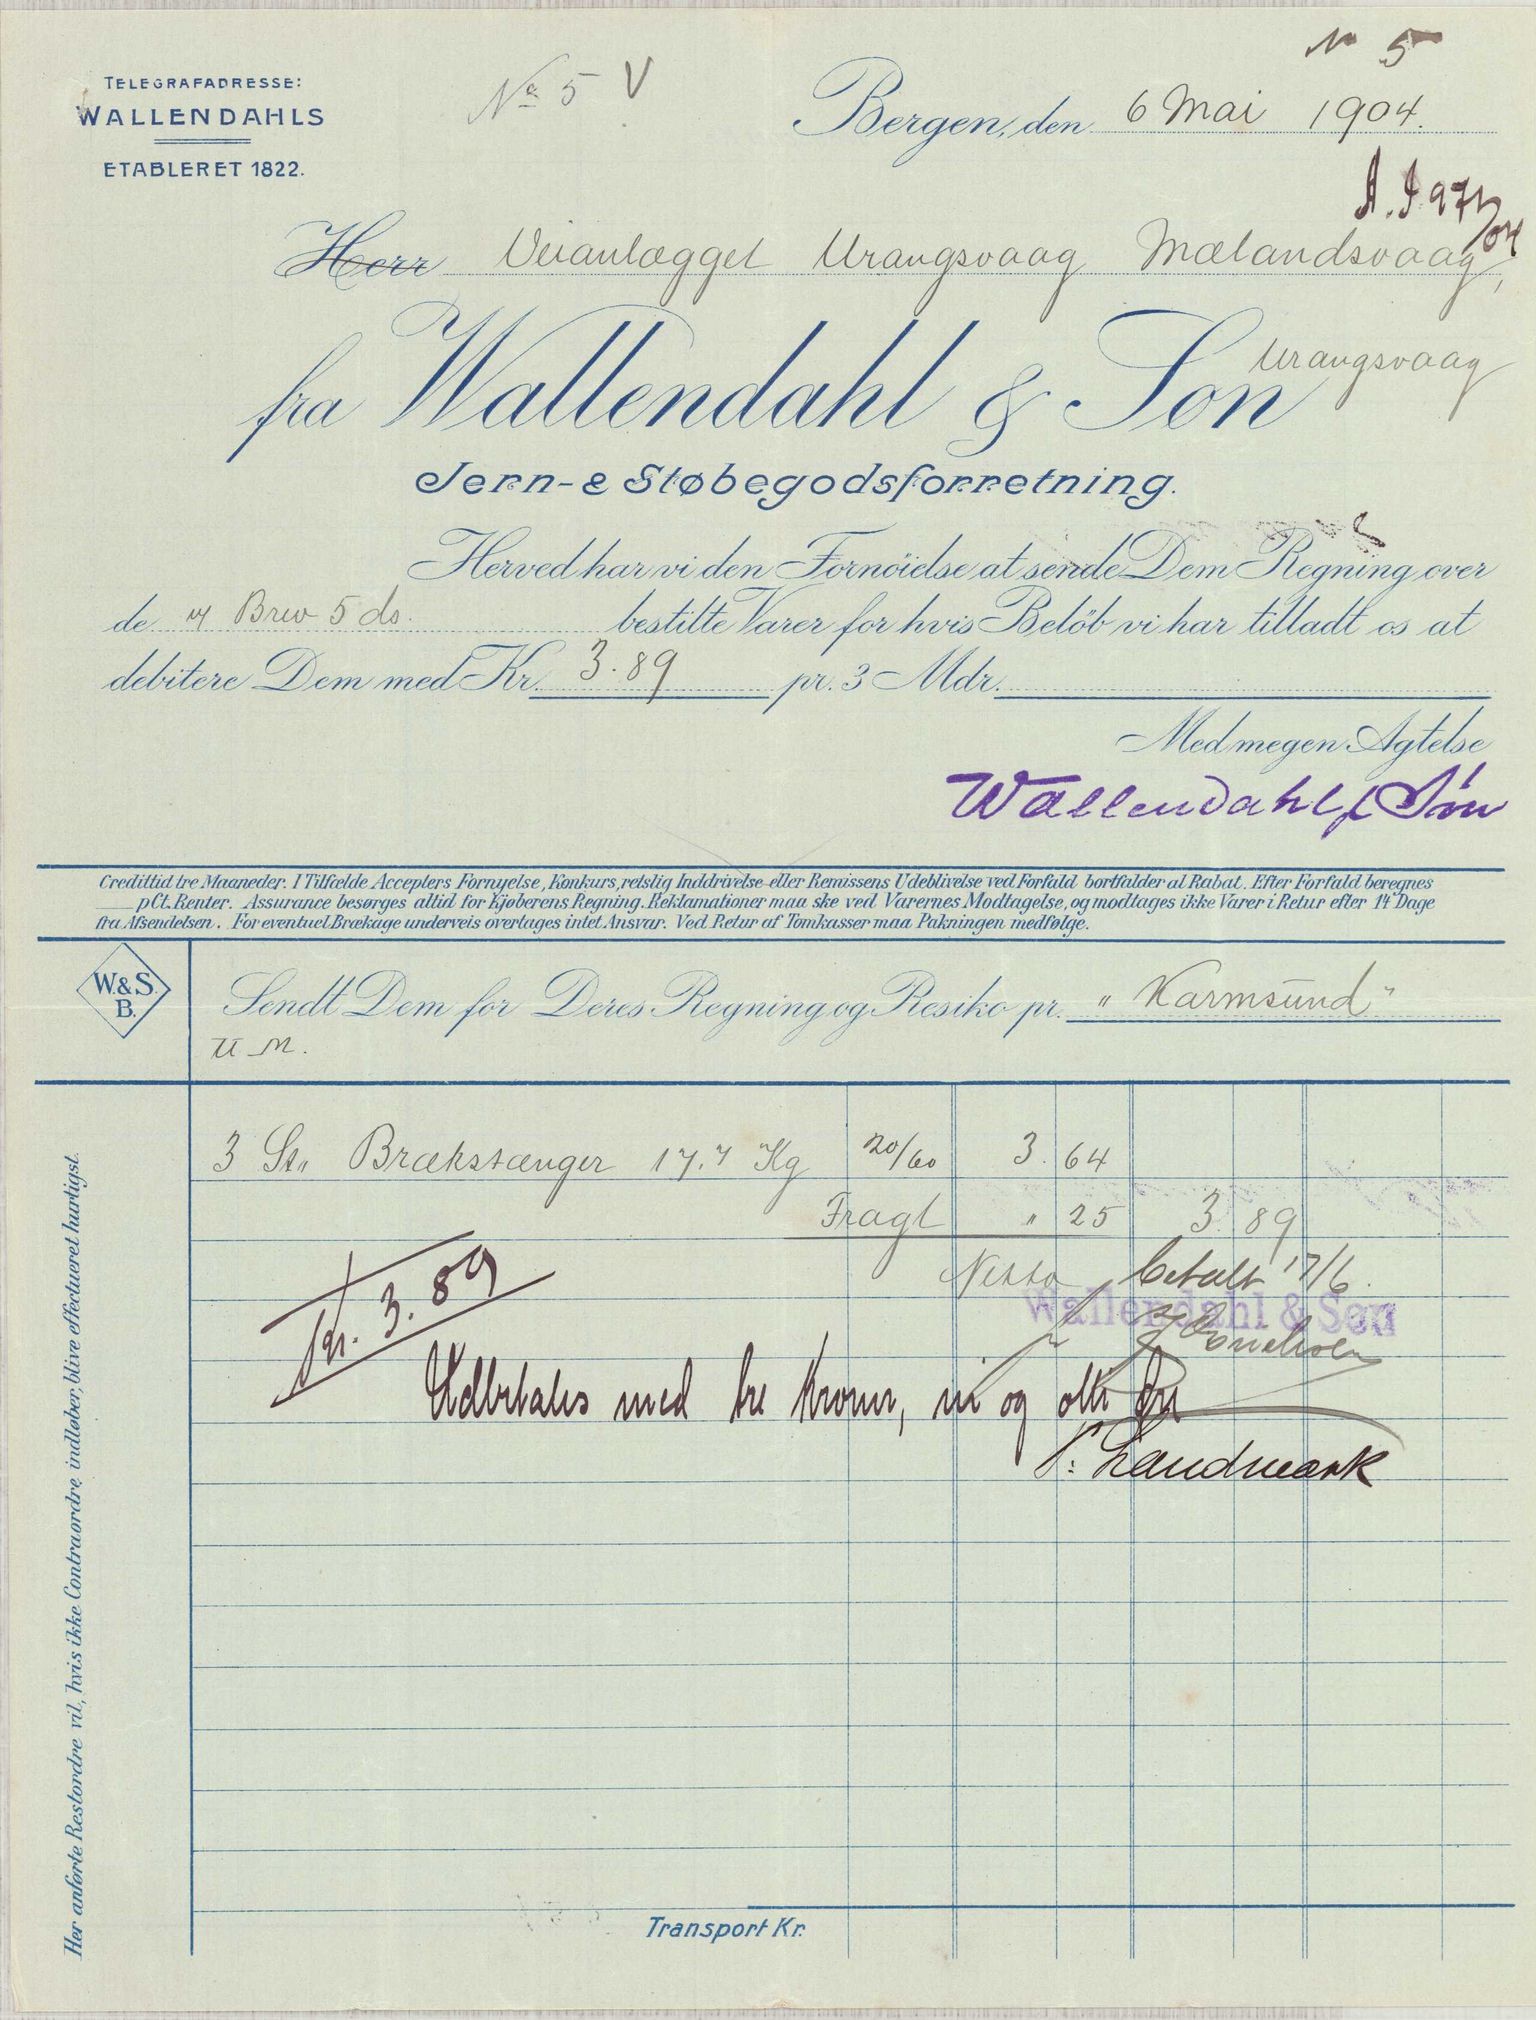 TELEGRAFADRESSE:
WALLENDAHLS
ETABLERET 1822.
No 5 V
No 5
Bergen, den 6 Mai 1904.
A. J 971/04
Herr Veianlægget Urangsvaag Mælandsvaag,
Urangsvaag
fra Wallendahl & Søn
Jern- & Støbegodsforretning.
Herved har vi den Fornöielse at sende Dem Regning over
de Brev 5 ds. bestilte Varer for hvis Belöb vi har tilladt os at
debitere Dem med Kr. 3.89 pr. 3 Mdr.
Med megen Agtelse
Wallendahl & Søn
Credittid tre Maaneder. I Tilfælde Accepters Fornyelse, Konkurs, retslig Inddrivelse eller Remissens Udeblivelse ved Forfald bortfalder al Rabat. Efter Forfald beregnes
pCt. Renter. Assurance besørges altid for Kjøberens Regning. Reklamationer maa ske ved Varernes Modtagelse, og modtages ikke Varer i Retur efter 14 Dage
fra Afsendelsen. For eventuel Brækage underveis overtages intet Ansvar. Ved Retur af Tomkasser maa Pakningen medfølge.
W. & S.
B.
Sendt Dem for Deres Regning og Resiko pr. "Karmsund"
U M.
3 St. Brækstænger 17.7 Kg 20/60 3.64
Fragt " 25 3 89
Netto betalt 17/6.
Wallendahl & Søn
Kr. 3.89
Udbetales med tre kroner, ni og otti øre
P. Landmark
Transport Kr.
Her anførte Restordre vil, hvis ikke Contraordre indløber, blive effectueret hurtigst.